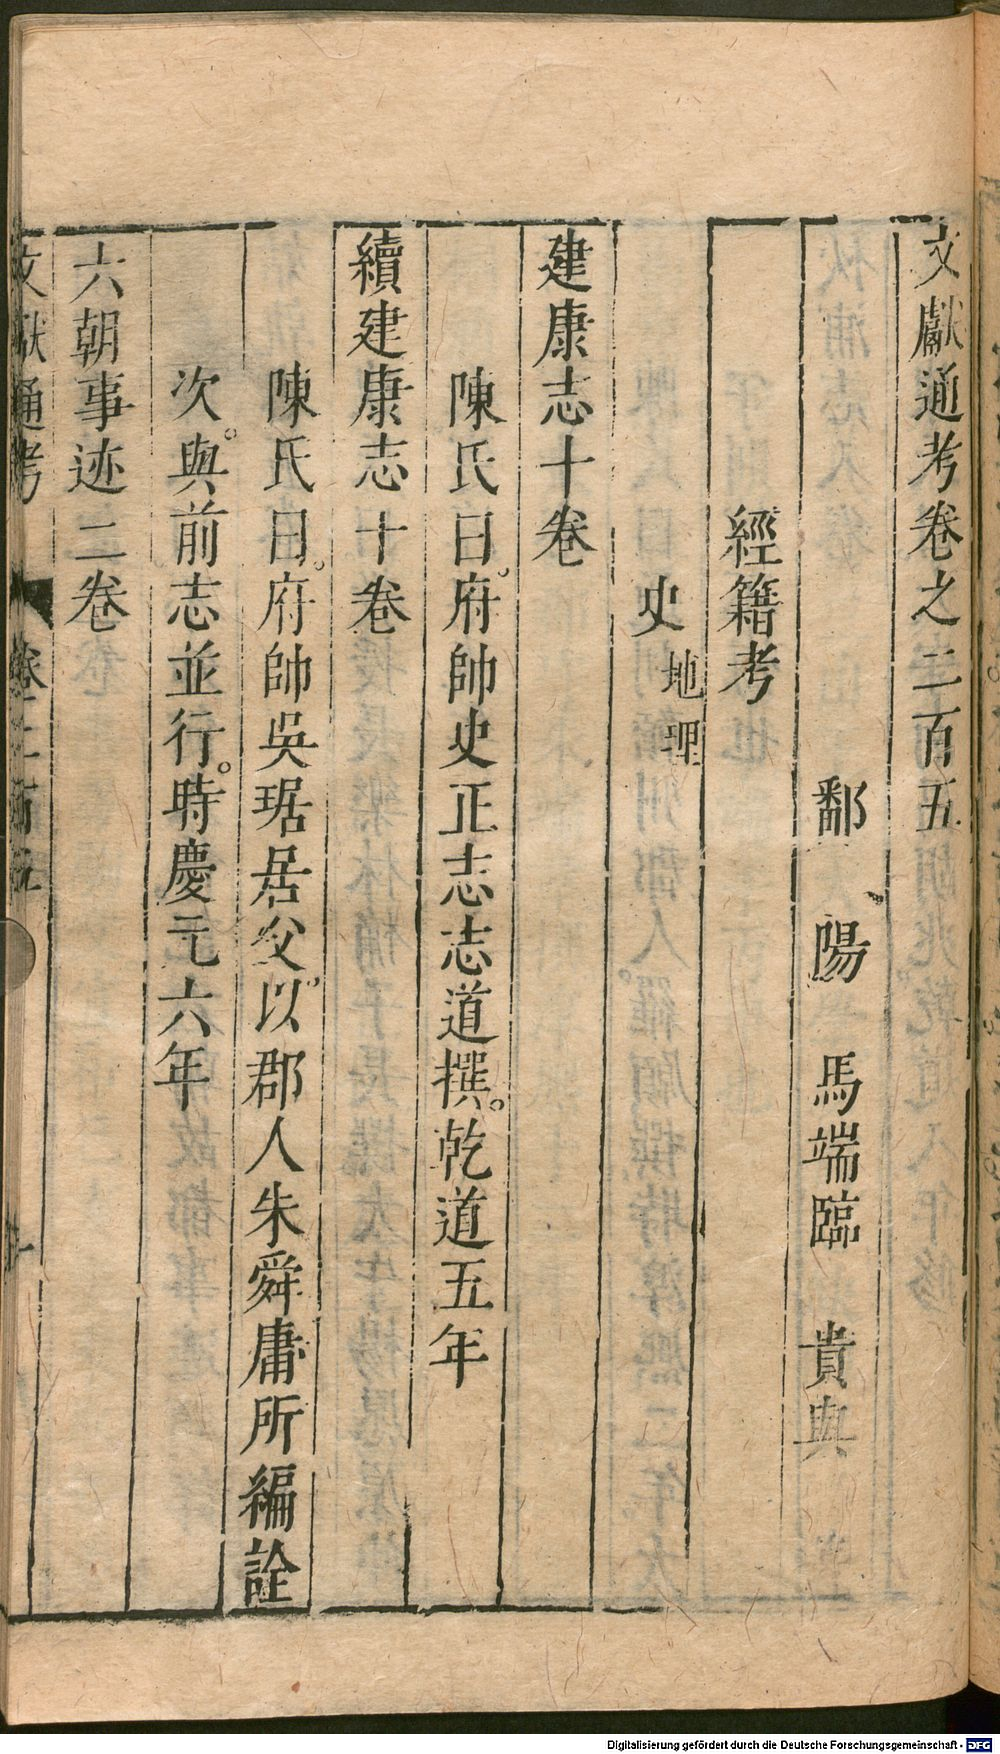 文獻通考卷之二百五
鄱陽馬端臨貴與
經籍考
史地理
建康志十卷
陳氏曰。府帥史正志志道撰。乾道五年
續建康志十卷
陳氏曰。府帥吳琚居父。以郡人朱舜庸所編詮
次。與前志並行。時慶元六年
六朝事迹二卷
文獻通考 卷二百五
Digitalisierung gefördert durch die Deutsche Forschungsgemeinschaft - DFG